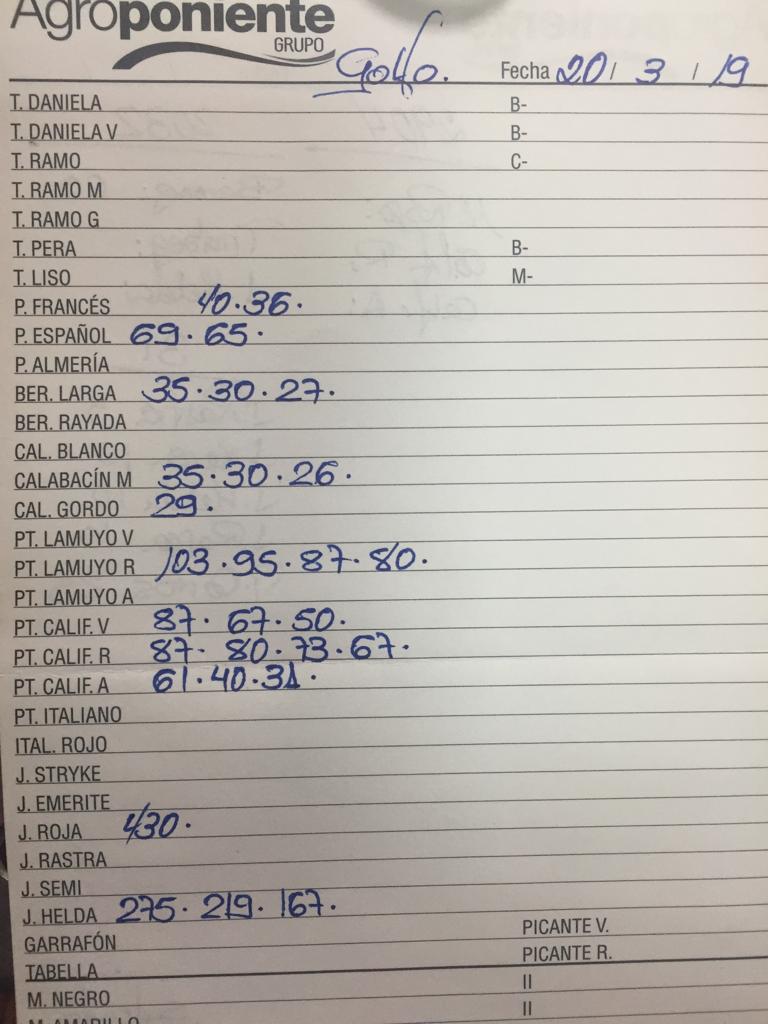 Agroponiente
GRUPO
Golfo. Fecha 20 / 3 / 19
T. DANIELA B-
T. DANIELA V B-
T. RAMO C-
T. RAMO M
T. RAMO G
T. PERA B-
T. LISO M-
P. FRANCÉS 40.36.
P. ESPAÑOL 69.65.
P. ALMERÍA
BER. LARGA 35.30.27.
BER. RAYADA
CAL. BLANCO
CALABACÍN M 35.30.26.
CAL. GORDO 29.
PT. LAMUYO V
PT. LAMUYO R 103.95.87.80.
PT. LAMUYO A
PT. CALIF. V 87.67.50.
PT. CALIF. R 87.80.73.67.
PT. CALIF. A 61.40.31.
PT. ITALIANO
ITAL. ROJO
J. STRYKE
J. EMERITE
J. ROJA 430.
J. RASTRA
J. SEMI
J. HELDA 275.219.167.
GARRAFÓN PICANTE V.
TABELLA PICANTE R.
M. NEGRO II
M. AMARILLO II